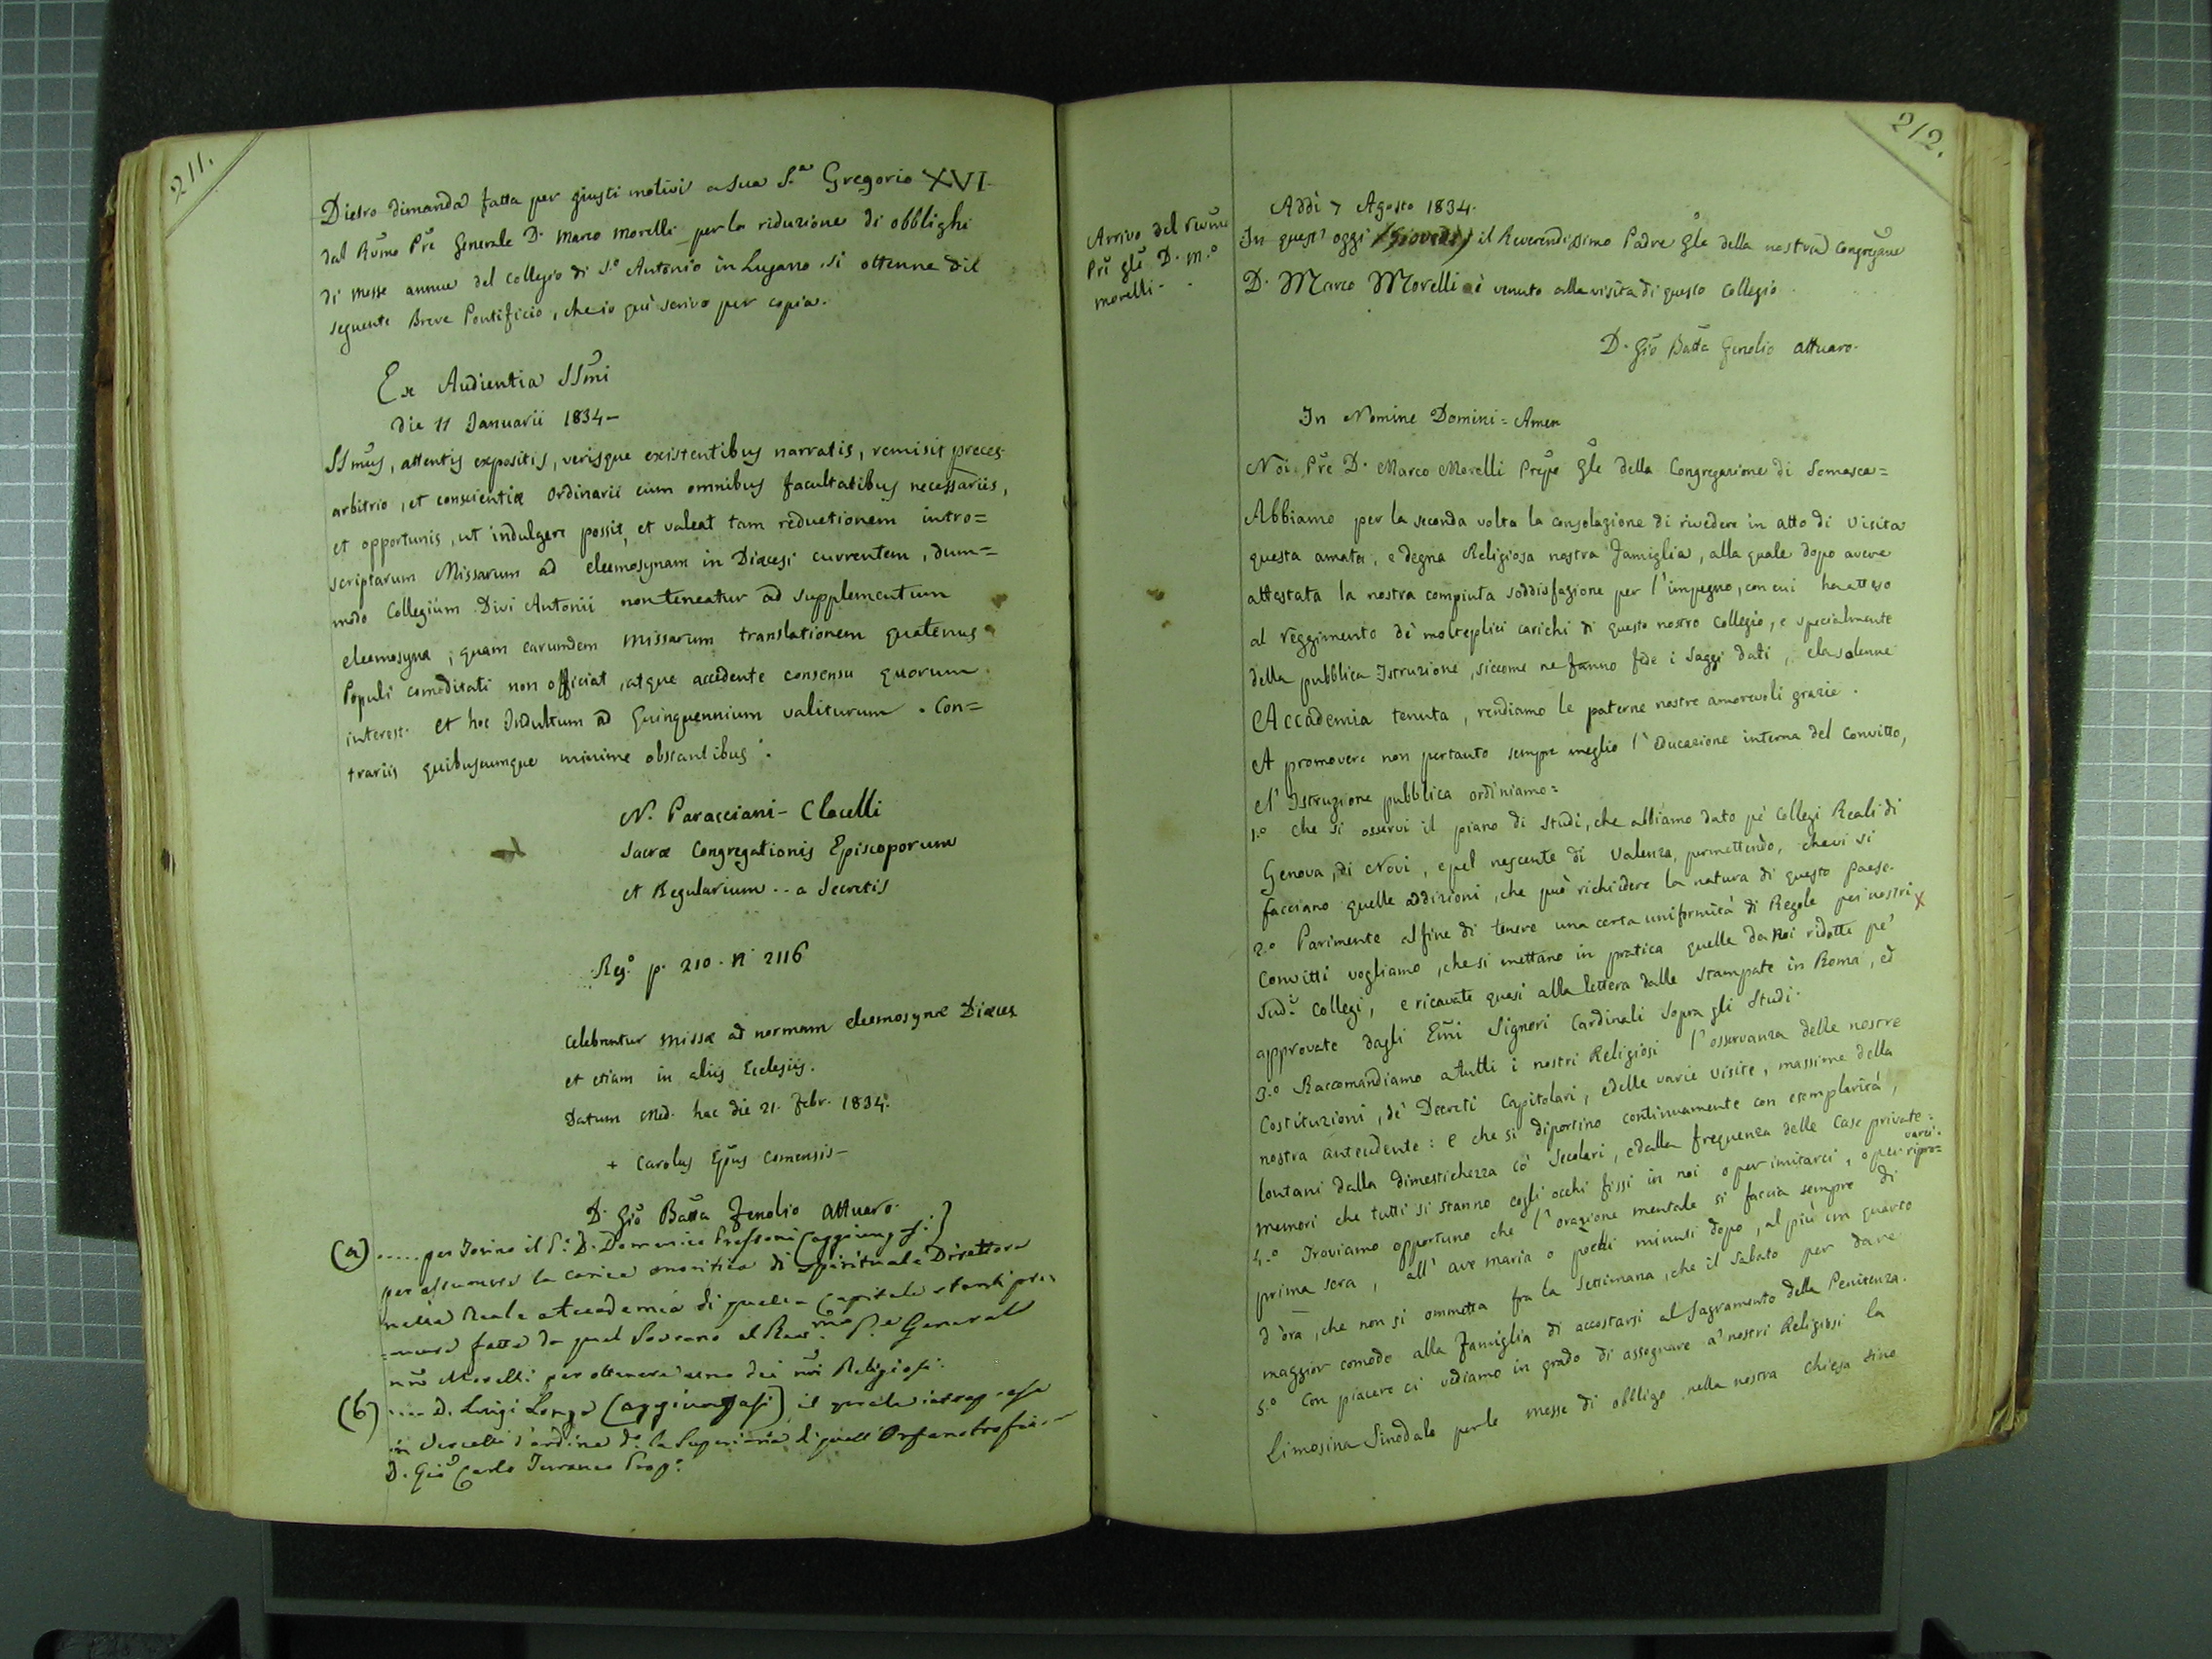 211.
Dietro dimanda fatta per giusti motivi a Sua S.ᵃ Gregorio XVI
dal Rm̃o Prẽ Generale D. Marco Morelli per la riduzione di obblighi
di Messe annue del Collegio di S.º Antonio in Lugano, si ottenne dil
seguente Breve Pontificio, che io quì scrivo per copia.
Ex Audientia SSm̃i
die 11 Januarii 1834-
SSmũs, attentis expositis, verisque existentibus narratis, remisit preces
arbitrio, et conscientiæ Ordinarii cum omnibus facultatibus necessariis,
et opportunis, ut indulgere possit, et valeat tam reductionem intro=
scriptarum Missarum ad eleemosynam in Diœcesi currentem, dum=
modo Collegium Divi Antonii non teneatur ad supplementum
eleemosynæ; quam earumdem Missarum translationem quatenus
Populi comoditati non officiat, atque accedente consensu quorum
interest. Et hoc Indultum ad Quinquennium valiturum. Con=
trariis quibuscumque minime obstantibus.
N. Paracciani-Clacelli
Sacræ Congregationis Episcoporum
et Regularium.. a Secretis
Reg.º p. 210. N 2116
Celebrentur Missæ ad normam eleemosynæ Diœces.
et etiam in aliis Ecclesiis.
Datum Med. hac die 21. Febr. 1834.
+ Carolus Epũs Comensis-
D. Giõ Batta Fenolio Attuaro.
(a) ..... per Torino il P: D. Domenico (aggiungasi)
per assumere la carica onorifica di Spirituale Direttore
nella Reale Accademia di quella Capitale stante pre=
=mura fatta da quel Sovrano al Rev.ᵐᵒ P.ᵉ Generale
nrõ Morelli per ottenere uno dei nrĩ Religiosi.
(b) .... D. Luigi Longo (aggiungasi) il quale
in Vercelli l'ordine d. la Superiorìa di quell'Orfanotrofio
D. Giõ Carlo Prop.º
212.
Arrivo del Revm̃o
Prẽ glẽ D. M.º
Morelli..
Addì 7 Agosto 1834.
In quest'oggi (Giovedì) il Reverendissimo Padre Glẽ della nostra Congregaz̃ne
D. Marco Morelli è venuto alla visita di questo Collegio.
D. Giõ Batta Fenolio attuaro.
In Nomine Domini = Amen
Noi Prẽ D. Marco Morelli Prepõ Glẽ della Congregazione di Somasca=
Abbiamo per la seconda volta la consolazione di rivedere in atto di visita
questa amata, e degna Religiosa nostra Famiglia, alla quale dopo avere
attestata la nostra compiuta soddisfazione per l'impegno, con cui ha atteso
al reggimento de' molteplici carichi di questo nostro Collegio, e specialmente
della pubblica Istruzione, siccome ne fanno fede i Saggi dati, e la solenne
Accademia tenuta, rendiamo le paterne nostre amorevoli grazie.
A promovere non pertanto sempre meglio l'educazione interna del Convitto,
e l'Istruzione pubblica ordiniamo=
1.º Che si osservi il piano di Studi, che abbiamo dato pe' Collegi Reali di
Genova, di Novi, e pel nascente di Valenza, permettendo, che vi si
facciano quelle addizioni, che può richiedere la natura di questo paese.
2.º Parimente al fine di tenere una certa uniformità di Regole pei nostri x
Convitti vogliamo, che si mettano in pratica quelle da Noi ridotte pe'
Sud.ⁱ Collegi, e ricavate quasi alla lettera dalle stampate in Roma, ed
approvate dagli Em̃i Signori Cardinali Sopra gli Studi.
3.º Raccomandiamo a tutti i nostri Religiosi l'osservanza delle nostre
Costituzioni, de' Decreti Capitolari, e delle varie visite, massime della
nostra antecedente: e che si diportino continuamente con esemplarità,
lontani dalla dimestichezza co' Secolari, e dalla frequenza delle Case private:
memori che tutti si stanno cogli occhi fissi in noi o per imitarci, o per ripro=
varci.
4.º Troviamo opportuno che l'orazione mentale si faccia sempre di
prima sera, all'ave maria o pochi minuti dopo, al più un quarto
d'ora, che non si ommetta fra la Settimana, che il Sabato per dare
maggior comodo alla Famiglia di accostarsi al Sagramento della Penitenza.
5.º Con piacere ci vediamo in grado di assegnare a' nostri Religiosi la
Limosina Sinodale per le messe di obbligo nella nostra Chiesa sino